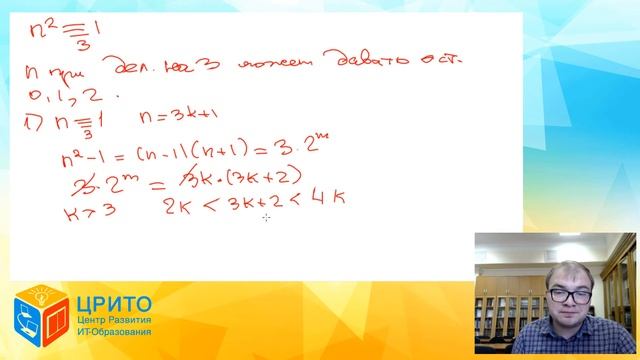 n² ≡₃ 1
n при дел. на 3 может давать ост.
0, 1, 2.
1) n ≡₃ 1 n = 3k+1
n²-1 = (n-1)(n+1) = 3·2ᵐ
3·2ᵐ = 3k·(3k+2)
k > 3 2k < 3k+2 < 4k
ЦРИТО
Центр Развития
ИТ-Образования